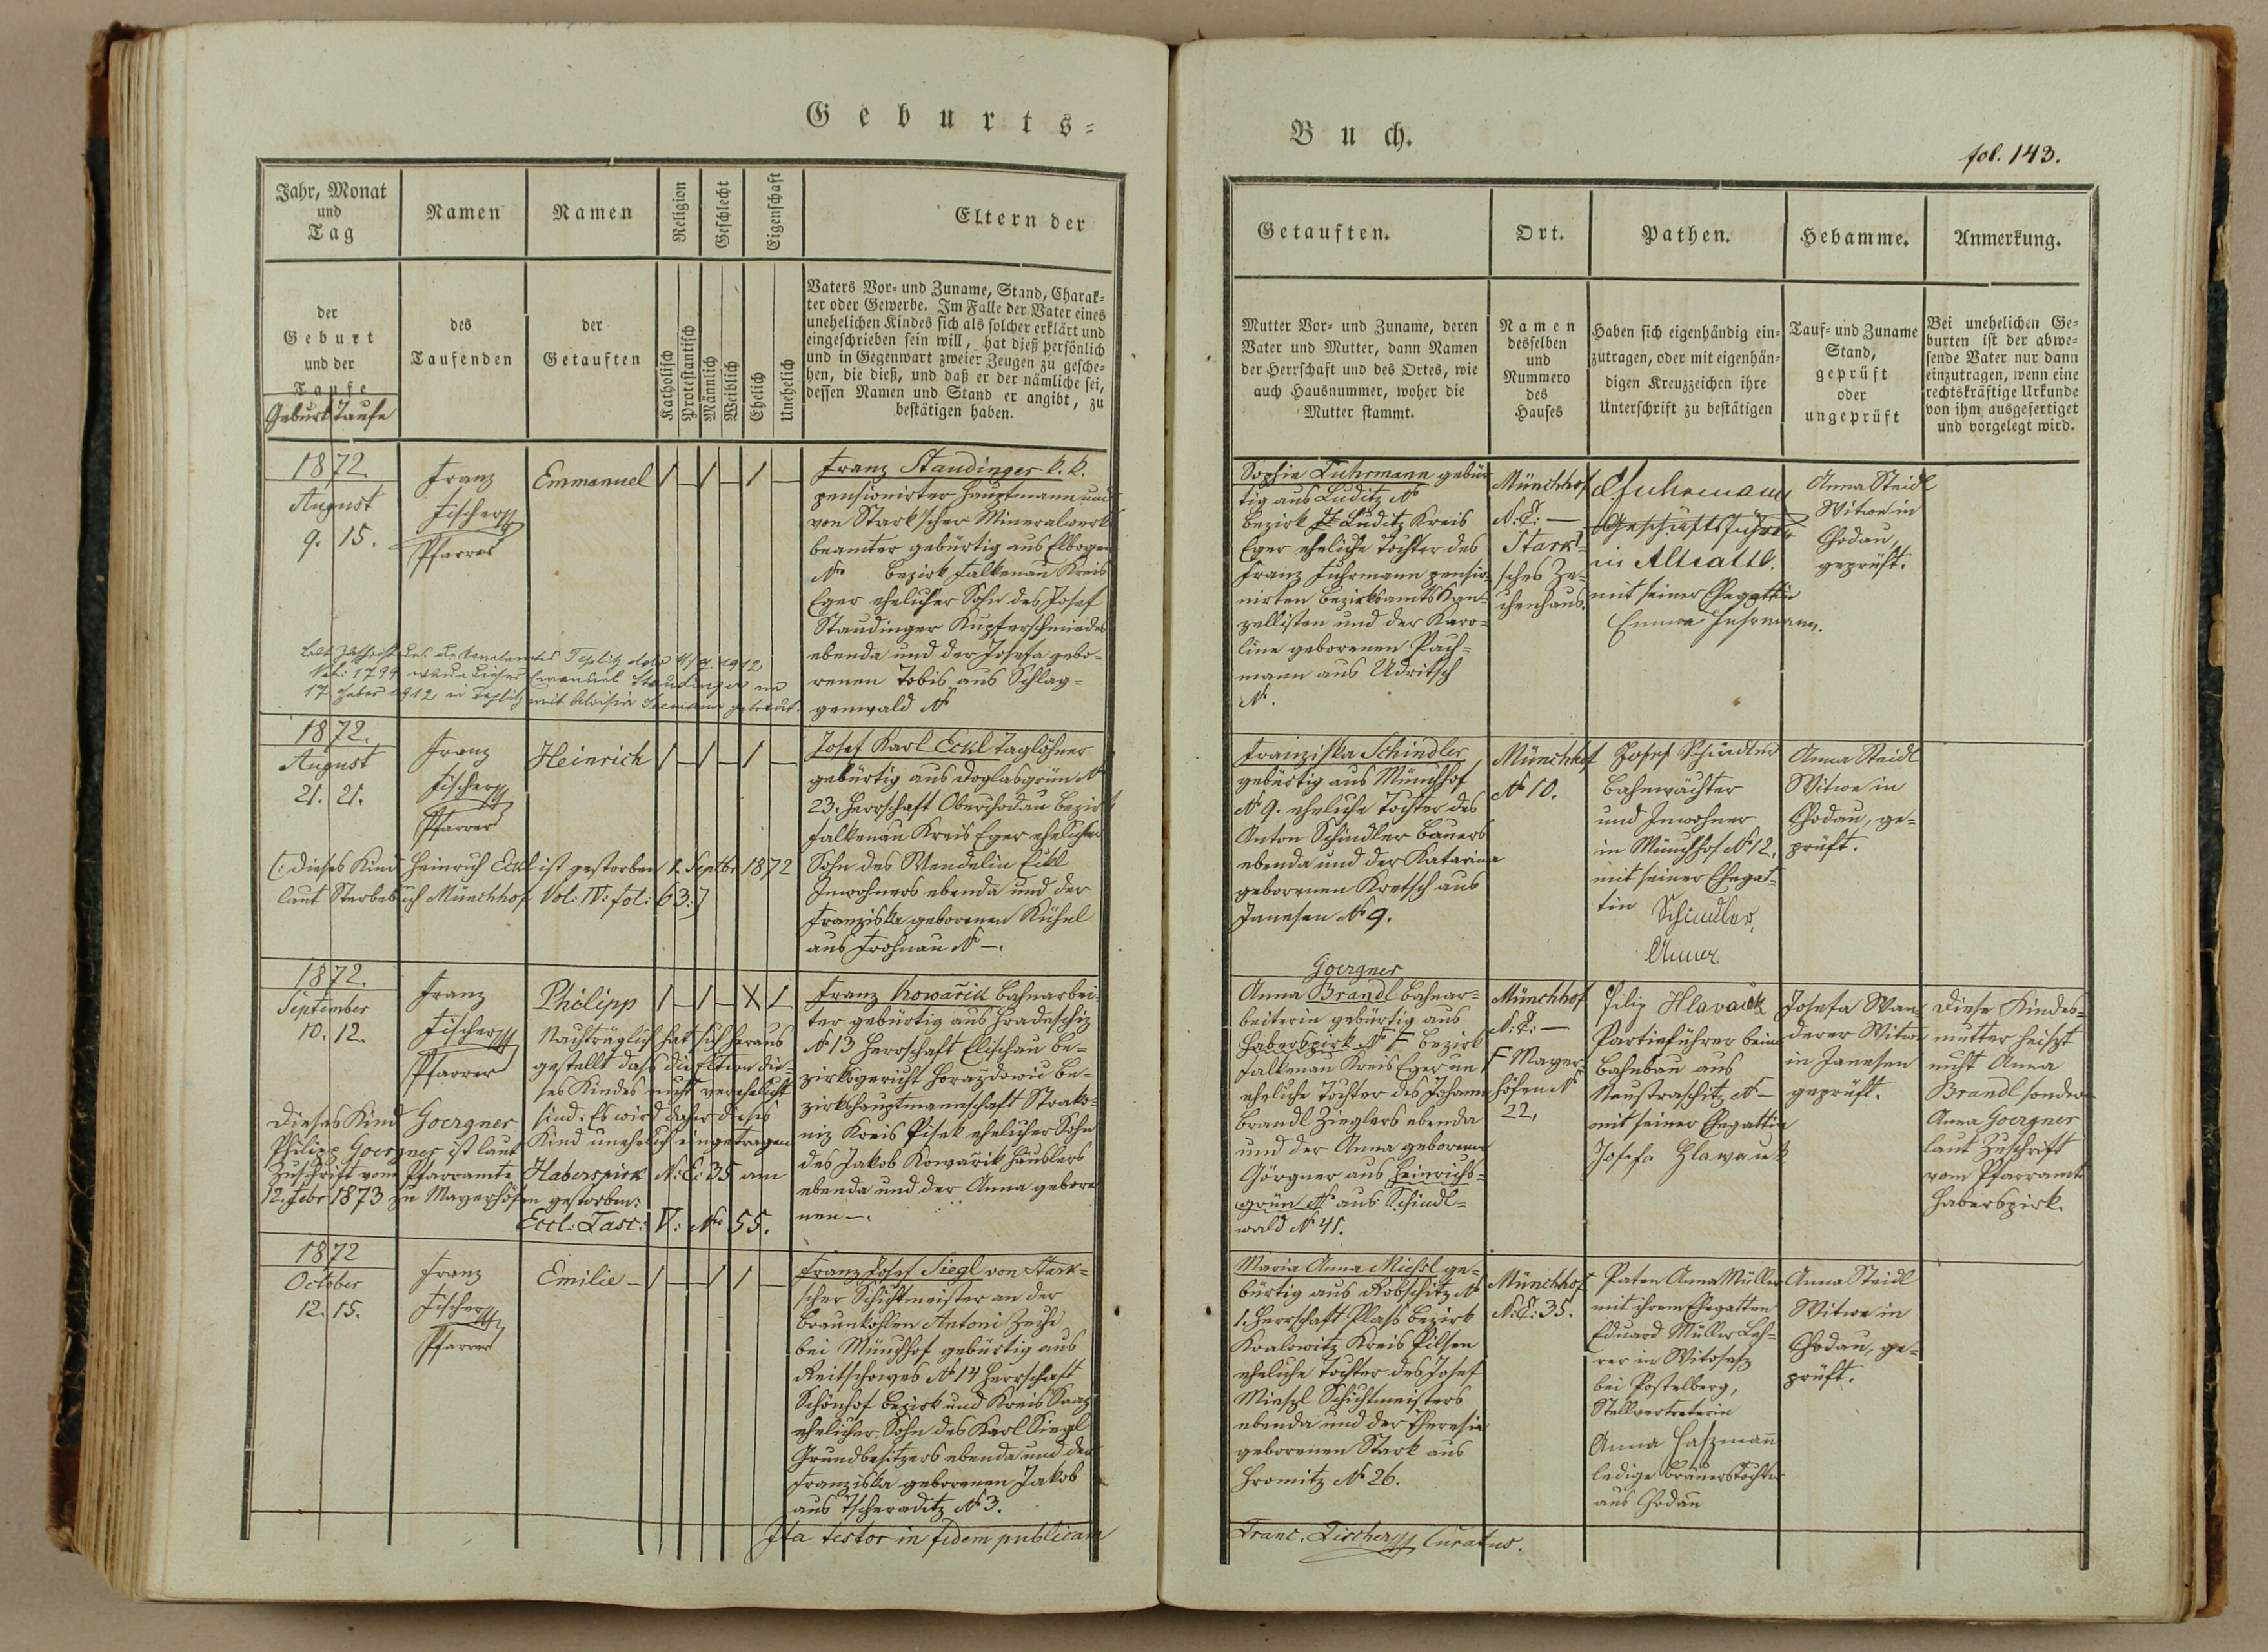 Geburts=
Jahr, Monat
und
Tag
der
Geburt
und der
Taufe
Geburt Taufe
Namen
des
Taufenden
Namen
der
Getauften
Religion
Katholisch
Protestantisch
Geschlecht
Männlich
Weiblich
Eigenschaft
Ehelich
Unehelich
Eltern der
Vaters Vor= und Zuname, Stand, Charak=
ter oder Gewerbe. Im Falle der Vater eines
unehelichen Kindes sich als solcher erklärt und
eingeschrieben sein will, hat dieß persönlich
und in Gegenwart zweier Zeugen zu gesche=
hen, die dieß, und daß er der nämliche sei,
dessen Namen und Stand er angibt, zu
bestätigen haben.
1872.
August
9. 15.
Franz
Fischer
Pfarrer
Emmanuel
Franz Staudinger k. k.
pensionirter Hauptmann und
von Stark'scher Mineralwerks
beamter gebürtig aus Elbogen
Nro Bezirk Falkenau Kreis
Eger ehelicher Sohn des Josef
Staudinger Kupferschmiedes
ebenda und der Josefa gebo=
renen Tobis aus Schlag=
genwald No
Teplitz
1799 wurde dieser Emanuel Staudinger am
17 1912 in Teplitz mit getraut.
1872.
August
21. 21.
Franz
Fischer
Pfarrer
Heinrich
(: Dieses Kind Heinrich Eckl ist gestorben 2. Septbr 1872
laut Sterbebuch Münchhof Vol: IV: fol: 63:)
Josef Karl Eckl Taglöhner
gebürtig aus Doglasgrün No
23. Herrschaft Oberchodau Bezirk
Falkenau Kreis Eger ehelicher
Sohn des Wendelin Eckl
Inwohners ebenda und der
Franziska geborenen Kühnl
aus Frohnau No —.
1872.
September
10. 12.
Franz
Fischer
Pfarrer
Philipp
Nachträglich hat sich heraus
gestellt daß die Eltern die=
ses Kindes nicht verehelicht
sind. Es wird daher dieses
Kind unehelich eingetragen
Dieses Kind Goergner
Philipp Goergner ist laut
Zuschrift vom Pfarramte Haberspirk N: C: 35 am
12. Febr 1873 zu Mayerhöfen gestorben:
V: No 55.
Franz Kowařik Bahnarbei=
ter gebürtig aus Hradeschitz
No 13 Herrschaft Elischau Be=
zirksgericht Horaždowic Be=
zirkshauptmannschaft Strako=
niz Kreis Pisek ehelicher Sohn
des Jakob Kowařik Häuslers
ebenda und der Anna gebore
nen —.
1872
October
12. 15.
Franz
Fischer
Pfarrer
Emilie —
Franz Josef Siegl von Stark=
scher Schichtmeister an der
Braunkohlen Antoni Zeche
bei Münchhof gebürtig aus
Reitschowes No 14 Herrschaft
Schönhof Bezirk und Kreis Saaz
ehelicher Sohn des Karl Siegl
Grundbesitzers ebenda und der
Franziska geborenen Jakob
aus Tscheraditz No 3.
Ita testor in fidem publicam
Buch.
fol. 143.
Getauften.
Mutter Vor= und Zuname, deren
Vater und Mutter, dann Namen
der Herrschaft und des Ortes, wie
auch Hausnummer, woher die
Mutter stammt.
Ort.
Namen
desselben
und
Nummero
des
Hauses
Pathen.
Haben sich eigenhändig ein=
zutragen, oder mit eigenhän=
digen Kreuzzeichen ihre
Unterschrift zu bestätigen
Hebamme.
Tauf= und Zuname
Stand,
geprüft
oder
ungeprüft
Anmerkung.
Bei unehelichen Ge=
burten ist der abwe=
sende Vater nur dann
einzutragen, wenn eine
rechtskräftige Urkunde
von ihm ausgefertiget
und vorgelegt wird.
Sophie Fuhrmann gebür
tig aus Luditz No
Bezirk Luditz Kreis
Eger eheliche Tochter des
Franz Fuhrmann pensio=
nirten Bezirksamts Kan=
zellisten und der Karo=
line geborenen Pach=
mann aus Udritsch
No.
Münchhof
N: C: —
Stark'=
sches Ze=
chenhaus.
Fuhrmann
Geschäftsführer
in Altsattl.
mit seiner Ehegattin
Emma Fuhrmann.
Anna Steidl
Witwe in
Chodau,
geprüft.
Franziska Schindler
gebürtig aus Münchhof
No 9. eheliche Tochter des
Anton Schindler Bauers
ebenda und der Katarina
geborenen Kretsch aus
Janesen No 9.
Münchhof
No 10.
Josef Schindler
Bahnwächter
und Inwohner
in Münchhof No 12,
mit seiner Ehegat=
tin Schindler,
Anna
Anna Steidl
Witwe in
Chodau, ge=
prüft.
Goergner
Anna Brandl Bahnar=
beiterin gebürtig aus
Haberspirk No F Bezirk
Falkenau Kreis Eger un
eheliche Tochter des Johann
Brandl Zieglers ebenda
und der Anna geborenen
Görgner aus Heinrichs=
grün No aus Schindl=
wald No 41.
Münchhof
N: C: —
F Mayer=
höfen No
22,
Filip Hlavacek
Partieführer beim
Bahnbau aus
Neustraschitz No —
mit seiner Ehegattin
Josefa Hlawacek
Josefa Wan=
derer Witwe
in Janesen
geprüft.
Diese Kindes=
mutter heißt
nicht Anna
Brandl sondern
Anna Goergner
laut Zuschrift
vom Pfarramte
Haberspirk.
Maria Anna Miessl ge=
bürtig aus Robschitz No
1. Herrschaft Plass Bezirk
Kralowitz Kreis Pilsen
eheliche Tochter des Josef
Miessl Schichtmeisters
ebenda und der Theresia
geborenen Stark aus
Hromitz No 26.
Münchhof
N: C: 35.
Paten Anna Müller
mit ihrem Ehegatten
Eduard Müller Leh=
rer in Witosess
bei Postelberg,
Stellvertreterin
Anna Haßmann
ledige Bräuerstochter
aus Chodau
Anna Steidl
Witwe in
Chodau, ge=
prüft.
Franc. Fischer Curatus.